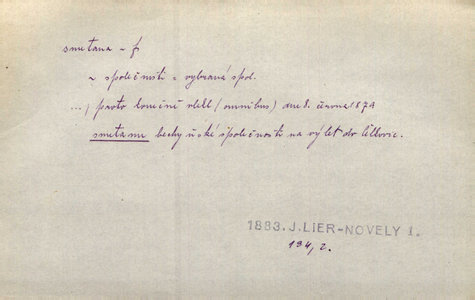 smetana - f
~ společnosti = vybraná spol.
..., proto konečně vlekl (omnibus) dne 8. června 1874
smetanu bechyňské společnosti na výlet do
1883. J. LIER-NOVELY I.
194, 2.